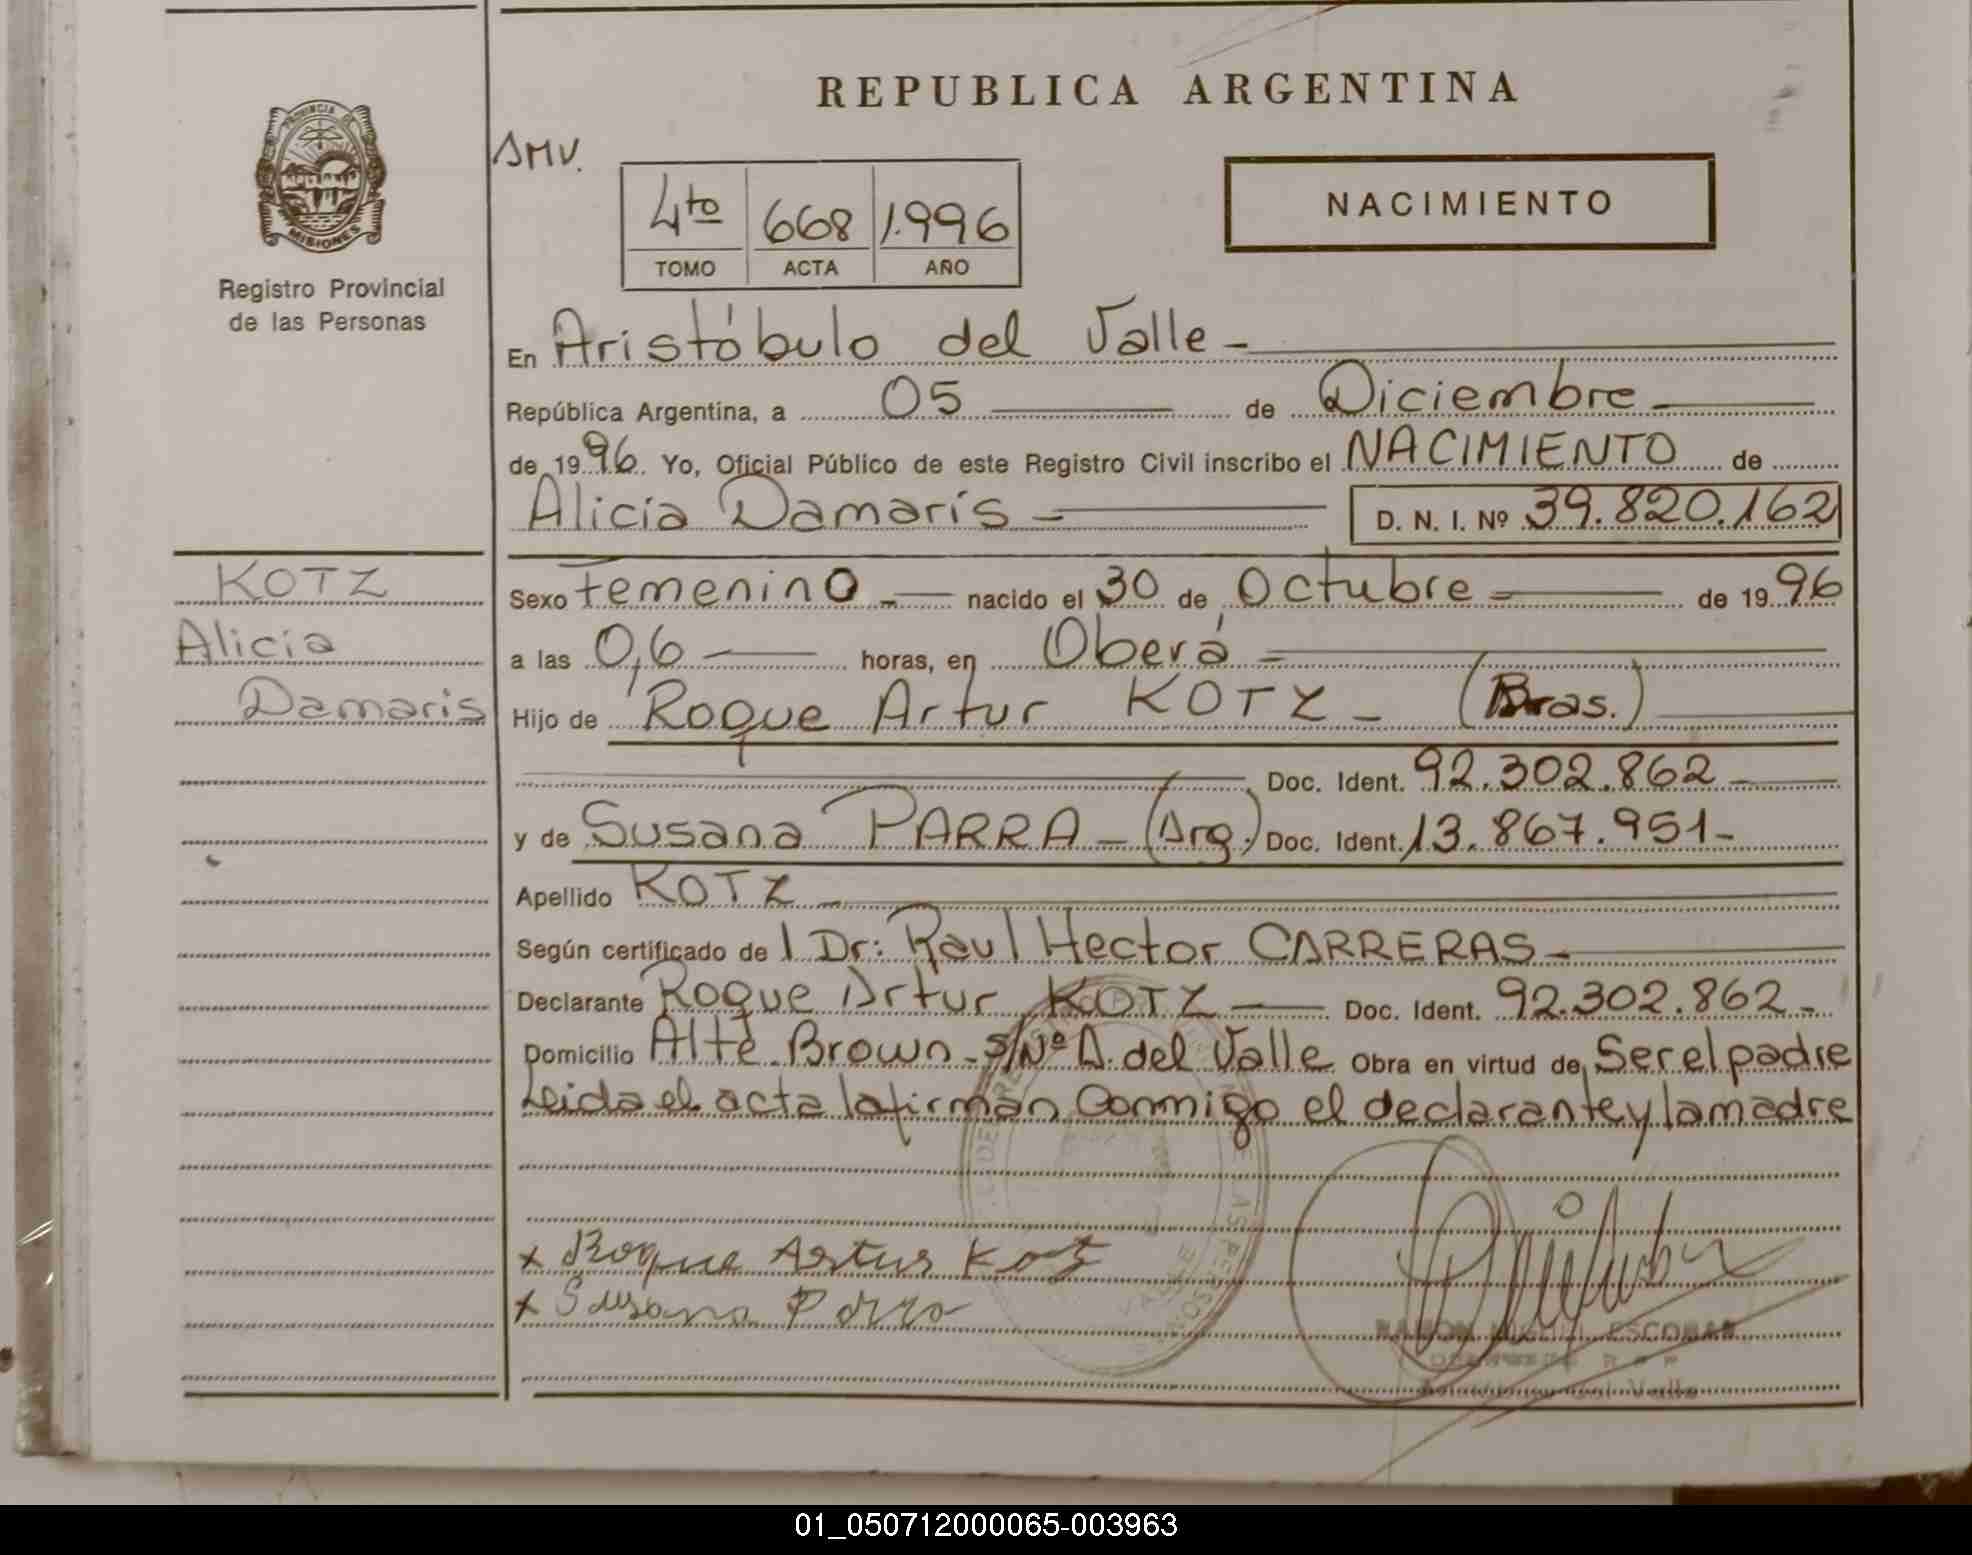 REPUBLICA ARGENTINA
PROVINCIA DE
MISIONES
Registro Provincial
de las Personas
SMV.
NACIMIENTO
4to 668 1.996
TOMO ACTA AÑO
En Aristóbulo del Valle -
República Argentina, a 05 de Diciembre
de 1996. Yo, Oficial Público de este Registro Civil inscribo el NACIMIENTO de
Alicia Damaris - D. N. I. Nº 39.820.162
KOTZ
Alicia
Damaris
Sexo Femenino nacido el 30 de Octubre de 1996
a las 0,6 horas, en Oberá
Hijo de Roque Artur KOTZ - (Bras.)
Doc. Ident. 92.302.862
y de Susana PARRA - (Arg.) Doc. Ident. 13.867.951-
Apellido KOTZ
Según certificado de l Dr: Raul Hector CARRERAS
Declarante Roque Artur KOTZ Doc. Ident. 92.302.862.
Domicilio Alte Brown S/Nº A. del Valle Obra en virtud de Ser el padre
Leida el acta la firman Conmigo el declarante y la madre
x Roque Artur Kotz
x Susana Parra
RAMON MIGUEL ESCOBAR
del Valle
01_050712000065-003963